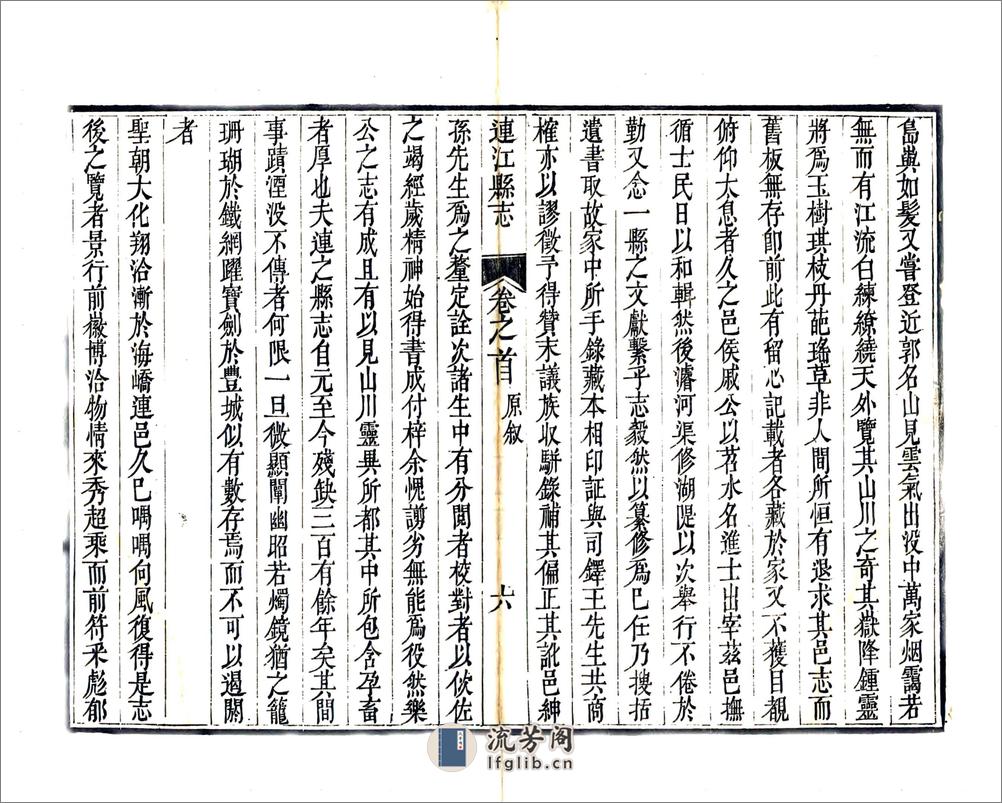 島輿如髮又嘗登近郭名山見雲氣出沒中萬家烟靄若
無而有江流白練繚繞天外覽其山川之奇其嶽降鍾靈
將爲玉樹琪枝丹葩瑤草非人間所恒有退求其邑志而
舊板無存卽前此有留心記載者各藏於家又不獲目覩
俯仰太息者久之邑侯戚公以茗水名進士出宰茲邑撫
循士民日以和輯然後濬河渠修湖隄以次舉行不倦於
勤又念一縣之文獻繫乎志毅然以纂修爲己任乃搜括
遺書取故家中所手錄藏本相印証與司鐸王先生共商
榷亦以謬徵予得贊末議族收駢錄補其偏正其訛邑紳
連江縣志
卷之首
原叙
六
孫先生爲之釐定詮次諸生中有分閲者校對者以佽佐
之竭經歲精神始得書成付梓余愧謭劣無能爲役然樂
公之志有成且有以見山川靈異所都其中所包含孕畜
者厚也夫連之縣志自元至今殘缺三百有餘年矣其間
事蹟湮没不傳者何限一旦微顯闡幽昭若燭鏡猶之籠
珊瑚於鐵網躍寶劍於豐城似有數存焉而不可以遏閼
者
聖朝大化翔洽漸於海嶠連邑久已喁喁向風復得是志
後之覽者景行前徽博洽物情來秀超乘而前符采彪郁
流芳阁
lfglib.cn